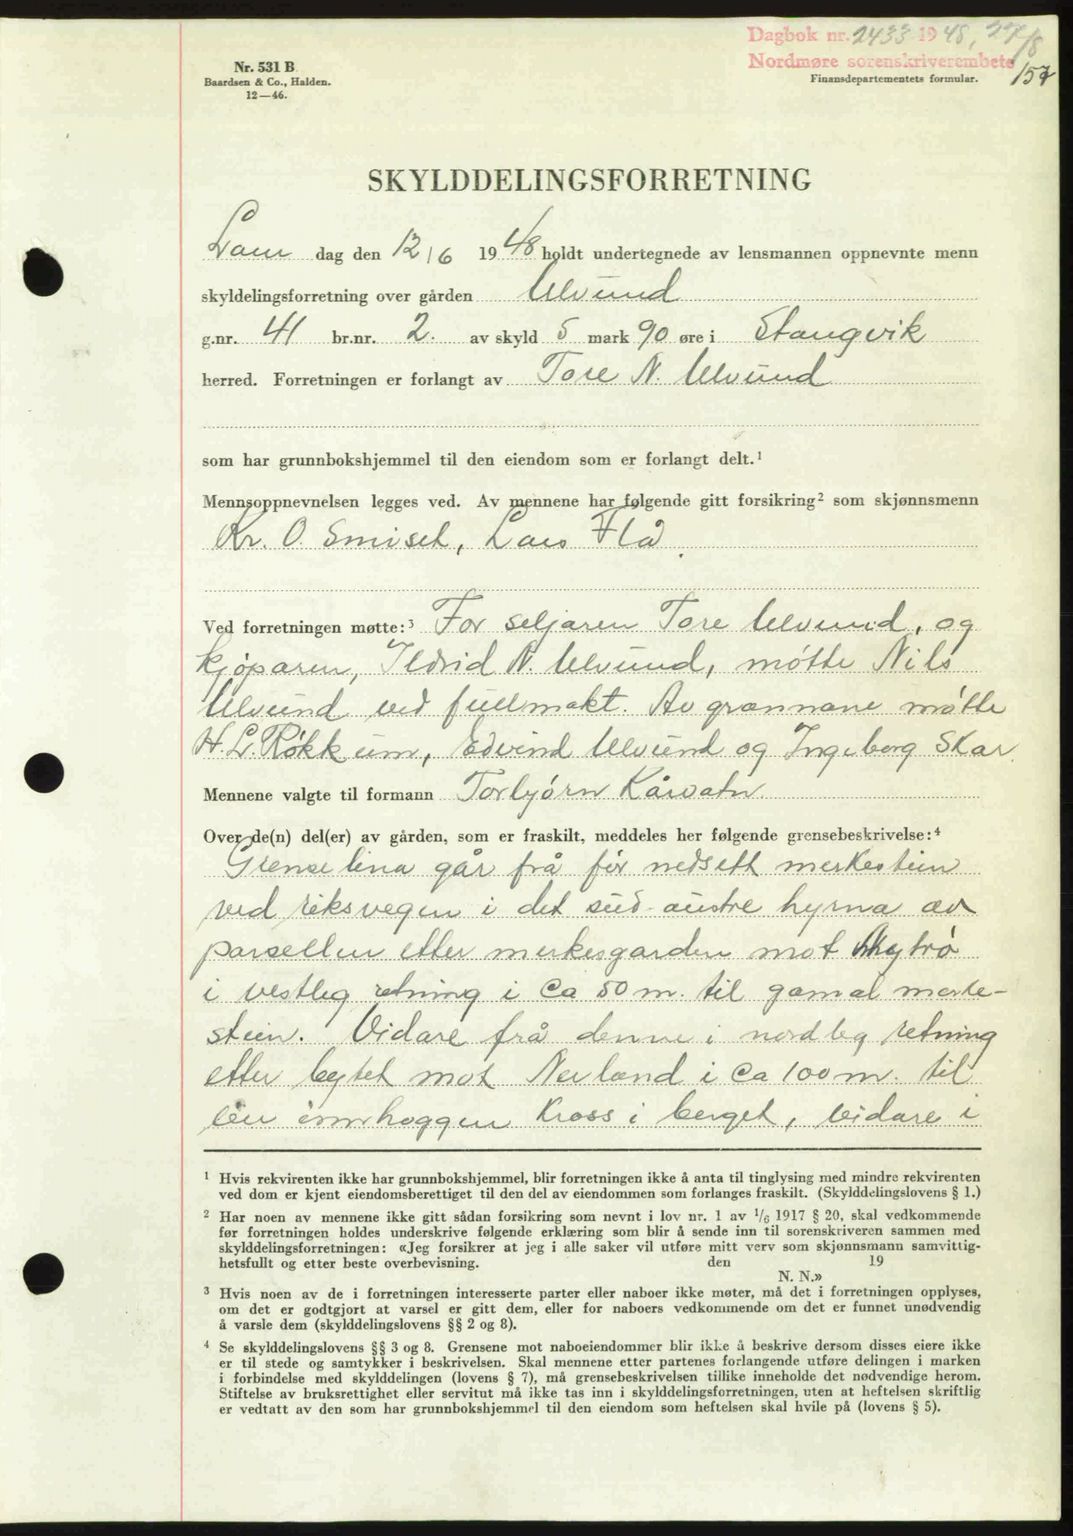 Dagbok nr. 2433 1948, 27/8
Nordmøre sorenskriverembete
157
Nr. 531 B
Baardsen & Co., Halden.
12—46.
Finansdepartementets formular.
SKYLDDELINGSFORRETNING
Laur dag den 12/6 1948 holdt undertegnede av lensmannen oppnevnte menn
skyldelingsforretning over gården Ulvund
g.nr. 41 br.nr. 2. av skyld 5 mark 90 øre i Stangvik
herred. Forretningen er forlangt av Tore N. Ulvund
som har grunnbokshjemmel til den eiendom som er forlangt delt.¹
Mennsoppnevnelsen legges ved. Av mennene har følgende gitt forsikring² som skjønnsmenn
Kr. O. Smiset, Lars Flå.
Ved forretningen møtte:³ For seljaren Tore Ulvund, og
kjøparen, Ildrid N. Ulvund, møtte Nils
Ulvund ved fullmakt. Av grannane møtte
H. L. Røkkum, Edvind Ulvund og Ingeborg Skar.
Mennene valgte til formann Torbjørn Kårvatn.
Over de(n) del(er) av gården, som er fraskilt, meddeles her følgende grensebeskrivelse:⁴
Grenselina går frå før nedsett merkestein
ved riksvegen i det sud-austre hyrna av
parsellen etter merkesgarden mot
i vestleg retning i ca 50 m. til gamal merke-
stein. Vidare frå denne i nordleg retning
etter bytet mot Nerland i ca 100 m. til
ein innhoggen kross i berget, vidare i
¹ Hvis rekvirenten ikke har grunnbokshjemmel, blir forretningen ikke å anta til tinglysing med mindre rekvirenten
ved dom er kjent eiendomsberettiget til den del av eiendommen som forlanges fraskilt. (Skylddelingslovens § 1.)
² Har noen av mennene ikke gitt sådan forsikring som nevnt i lov nr. 1 av 1/6 1917 § 20, skal vedkommende
før forretningen holdes underskrive følgende erklæring som blir å sende inn til sorenskriveren sammen med
skylddelingsforretningen: «Jeg forsikrer at jeg i alle saker vil utføre mitt verv som skjønnsmann samvittig-
hetsfullt og etter beste overbevisning. den 19
N. N.»
³ Hvis noen av de i forretningen interesserte parter eller naboer ikke møter, må det i forretningen opplyses,
om det er godtgjort at varsel er gitt dem, eller for naboers vedkommende om det er funnet unødvendig
å varsle dem (skylddelingslovens §§ 2 og 8).
⁴ Se skylddelingslovens §§ 3 og 8. Grensene mot naboeiendommer blir ikke å beskrive dersom disses eiere ikke
er til stede og samtykker i beskrivelsen. Skal mennene etter partenes forlangende utføre delingen i marken
i forbindelse med skylddelingen (lovens § 7), må grensebeskrivelsen tillike inneholde det nødvendige herom.
Stiftelse av bruksrettighet eller servitut må ikke tas inn i skylddelingsforretningen, uten at heftelsen skriftlig
er vedtatt av den som har grunnbokshjemmel til den eiendom som heftelsen skal hvile på (lovens § 5).